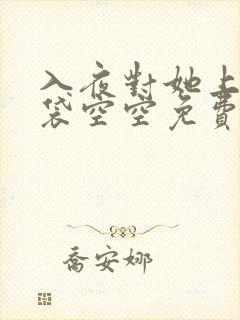 入夜對她上
袋空空免費
喬安娜